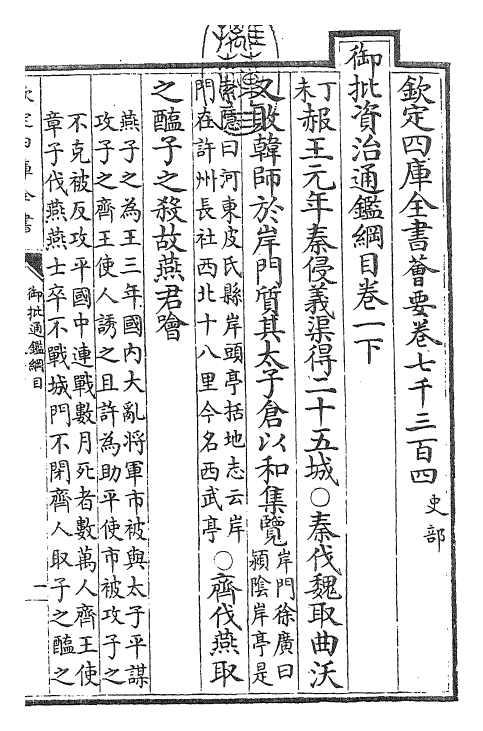 欽定四庫全書薈要卷七千三百四 史部
御批資治通鑑綱目卷一下
丁未 赧王元年秦侵義渠得二十五城○秦伐魏取曲沃
又敗韓師於岸門質其太子倉以和集覽 岸門徐廣曰
潁陰岸亭是
索隱曰河東皮氏縣岸頭亭括地志云岸
門在許州長社西北十八里今名西武亭 ○齊伐燕取
之醢子之殺故燕君噲
燕子之為王三年國內大亂將軍市被與太子平謀
攻子之齊王使人誘之且許為助平使市被攻子之
不克被反攻平國中連戰數月死者數萬人齊王使
章子伐燕燕士卒不戰城門不閉齊人取子之醢之
欽定四庫全書
御批通鑑綱目
一